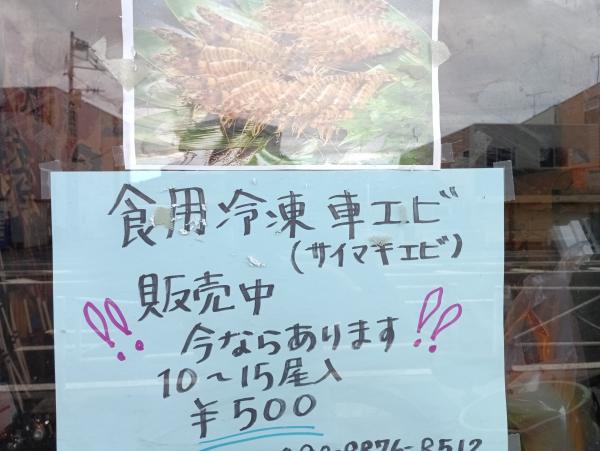 食用冷凍車エビ
(サイマキエビ)
販売中
!! 今ならあります !!
10～15尾入
¥500